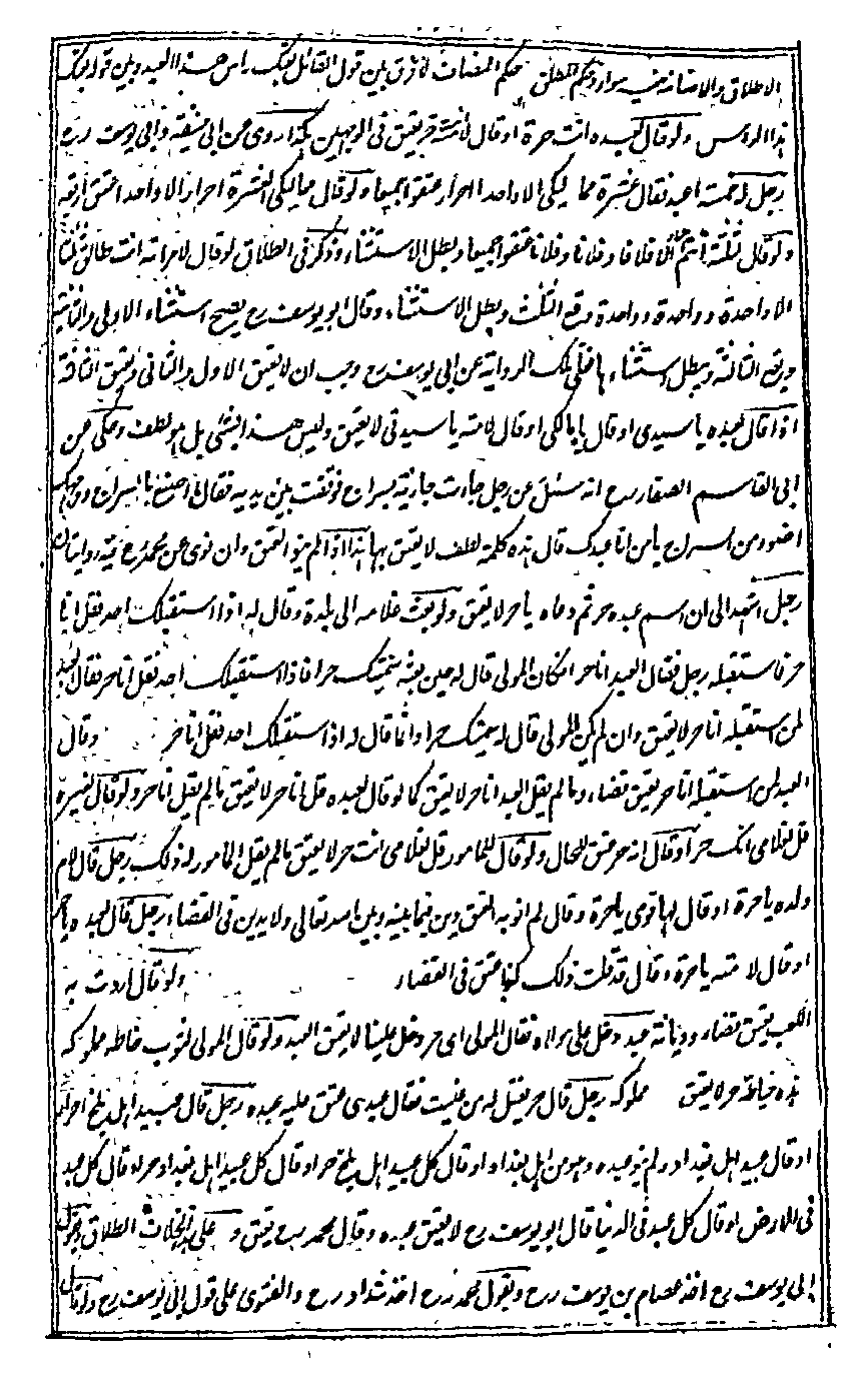 الاطلاق والاضافة فيه سواء وحكم المطلق حكم المضاف لا فرق بين قول القائل بعتك راس هذا العبد وبين قوله بعتك
هذا الراس ولو قال لعبده انت حرة او قال لامته حر يعتق في الوجهين هكذا روى عن ابي حنيفة وابي يوسف رح
رجل له خمسة اعبد فقال عشرة مماليكي الا واحدا احرار عتقوا جميعا ولو قال مماليكي العشرة احرار الا واحدا اعتق اربعة
ولو قال ثلثة انتم الا فلانا وفلانا وفلانا عتقوا جميعا وبطل الاستثناء وذكر في الطلاق لو قال لامراته انت طالق ثلثا
الا واحدة وواحدة وواحدة وقع الثلث وبطل الاستثناء وقال ابو يوسف رح يصح استثناء الاولى والثانية
ويقع الثالثة ويبطل استثناءها فعلى تلك الرواية عن ابي يوسف رح وجب ان لا يعتق الاول والثاني ويعتق الثالث
اذا قال لعبده يا سيدي او قال يا مالكي او قال لامته يا سيدتي لا يعتق وليس هذا بشئ بل هو لطف وحكى عن
ابي القاسم الصفار رح انه سئل عن رجل جاءت جاريته بسراج فوقفت بين يديه فقال لها اصنع بالسراج ووجهك
اضوء من السراج يا من انا عبدك قال هذه كلمة لطف لا يعتق بها هذا اذا لم ينو العتق وان نوى عن محمد رح فيه روايتان
رجل اشهد الى ان اسم عبده حر ثم دعاه يا حر لا يعتق ولو بعث غلامه الى بلدة وقال له اذا استقبلك احد فقل انا
حر فاستقبله رجل فقال العبد انا حر ان كان المولى قال له حين بعثه سميتك حرا فاذا استقبلك احد فقل انا حر فقال العبد
لمن استقبله انا حر لا يعتق وان لم يكن المولى قال له سميتك حرا وانما قال له اذا استقبلك احد فقل انا حر وقال
العبد لمن استقبله انا حر يعتق قضاء وما لم يقل العبد انا حر لا يعتق كما لو قال لعبده قل انا حر لا يعتق ما لم يقل انا حر ولو قال لغيره
قل لغلامي انك حر او قال انه حر عتق للحال ولو قال للمامور قل لغلامي انت حر لا يعتق ما لم يقل المامور له ذلك رجل قال لام
ولده يا حرة او قال لها قومي يا حرة وقال لم انو به العتق دين فيما بينه وبين الله تعالى ولا يدين في القضاء رجل قال لعبده يا حر
او قال لامته يا حرة وقال قد قلت ذلك كذبا عتق في القضاء ولو قال اردت به
اللعب يعتق قضاء وديانة عبد دخل على مولاه فقال المولى اي حر دخل علينا لا يعتق العبد ولو قال المولى لثوب خاطه مملوكه
هذه خياطة حر لا يعتق مملوكه رجل قال حر فقيل له من عنيت فقال عبدي عتق عليه عبده رجل قال عبيد اهل بلخ احرار
او قال عبيد اهل بغداد ولم ينو عبده وهو من اهل بغداد او قال كل عبيد اهل بلخ حر او قال كل عبيد اهل بغداد حر او قال كل عبد
في الارض او قال كل عبد في الدنيا قال ابو يوسف رح لا يعتق عبده وقال محمد رح يعتق و على هذا الخلاف الطلاق وبقول
ابي يوسف رح اخذ عصام بن يوسف رح وبقول محمد رح اخذ شداد رح والفتوى على قول ابي يوسف رح ولو قال